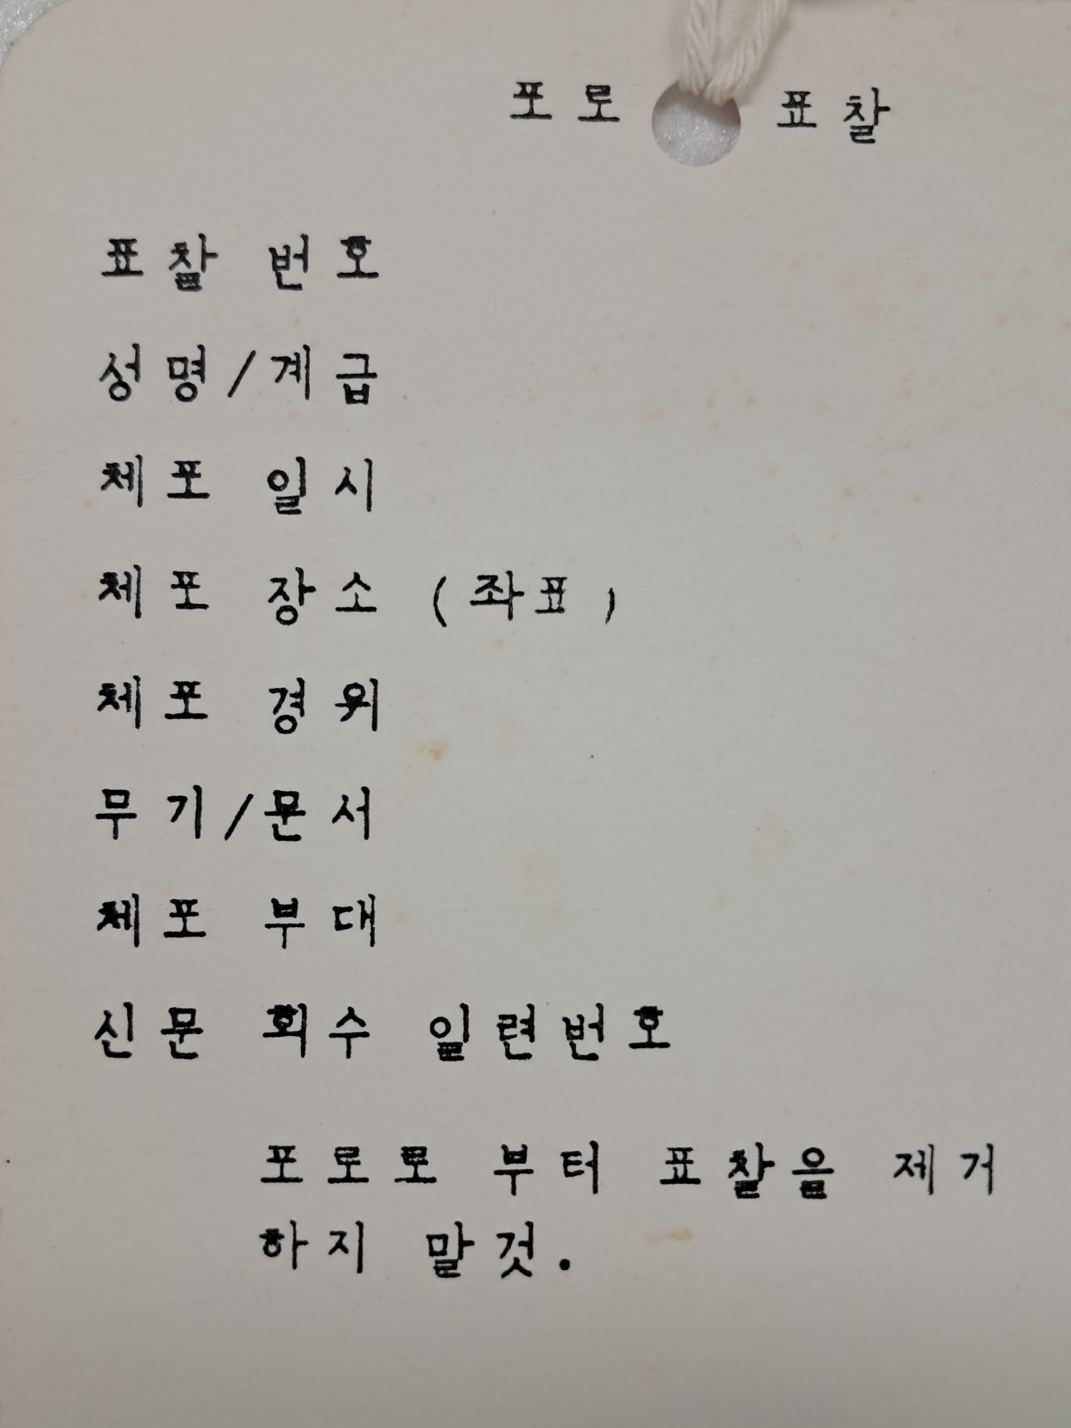 포로 표찰
표찰 번호
성명/계급
체포 일시
체포 장소 (좌표)
체포 경위
무기/문서
체포 부대
신문 회수 일련번호
포로로 부터 표찰을 제거
하지 말것.